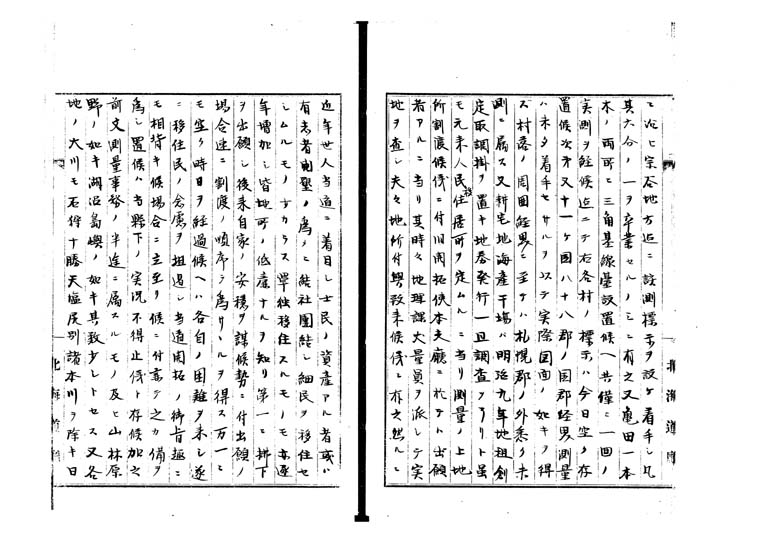 ニ沿ヒ宗谷地方迄ニ設測標示ヲ設ケ着手シ凡
其六分ノ一ヲ卒業セルノミニ有之又亀田一本
木ノ両所ニ三角基線量設置候ヘ共僅ニ一回ノ
実測ヲ経候迄ニテ右各村ノ標示ハ今日空ク存
置候次第又十一ヶ国八十八郡ノ国郡経界測量
ハ未タ着手セサルヲ以テ実際図面ノ如キヲ得
ス村落ノ周囲経界ニ至テハ札幌郡ノ外悉ク未
測ニ属ス又耕宅地海産干場ハ明治九年地租創
定取調掛ヲ置キ地券発行一旦調査ヲ了リト虽
モ元来人民移住居所ヲ定ムルニ当リ測量ノ上地
所割渡候儀ニ付旧開拓使本支廳ニ於テハ出願
者アルニ当リ其時々地理課大量員ヲ派シテ実
地ヲ査シ夫々地所付與致来候儀ニ有之然ルニ
北海道庁
近年世人当道ニ着目シ士民ノ資産アル者或ハ
有志者開墾ノ為メニ結社團結シ細民ヲ移住セ
シムルモノ少カラス単独移住スルモノモ亦逐
年増加シ皆地所ノ低産ナルヲ知リ第一ニ拂下
ヲ出願シ後来自家ノ安穏ヲ謀候勢ニ付出願ノ
場合速ニ割渡ノ順序ヲ為サヽルヲ得ス万一ニ
モ空ク時日ヲ経過候ヘハ各自ノ困難ヲ来シ遂
ニ移住民ノ念慮ヲ阻遏シ当道開拓ノ御旨趣ニ
モ相背キ候場合ニ立至リ候ニ付素テ之カ備ヲ
為シ置候ハ当縣下ノ実況不得止儀ト存候加之
前文測量事務ノ半途ニ属スルモノ及ヒ山林原
野ノ如キ湖沼島嶼ノ如キ其数少シトセス又各
地ノ大川モ石狩十勝天塩尻別諸本川ヲ除キ日